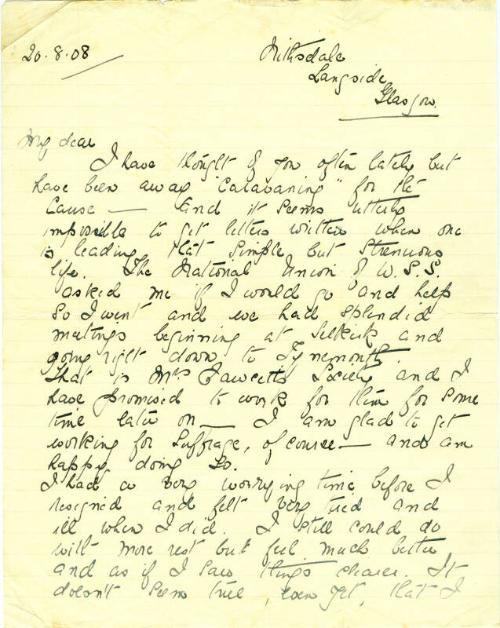 20.8.08
Nithsdale
Langside,
Glasgow.
My dear
I have thought of you often lately but
have been away "Caravaning" for the
Cause — and it seems utterly
impossible to get letters written when one
is leading that simple but strenuous
life. The National Union of W.S.S.
asked me if I would go and help
so I went and we had splendid
meetings beginning at Selkirk and
going right down to Tynemouth.
That is Mrs Fawcett's Society and I
have promised to work for them for some
time later on — I am glad to get
working for Suffrage, of course — and am
happy doing so.
I had a very worrying time before I
resigned and felt very tired and
ill when I did. I still could do
with more rest but feel much better
and as if I saw things clearer. It
doesn't seem true, even yet, that I